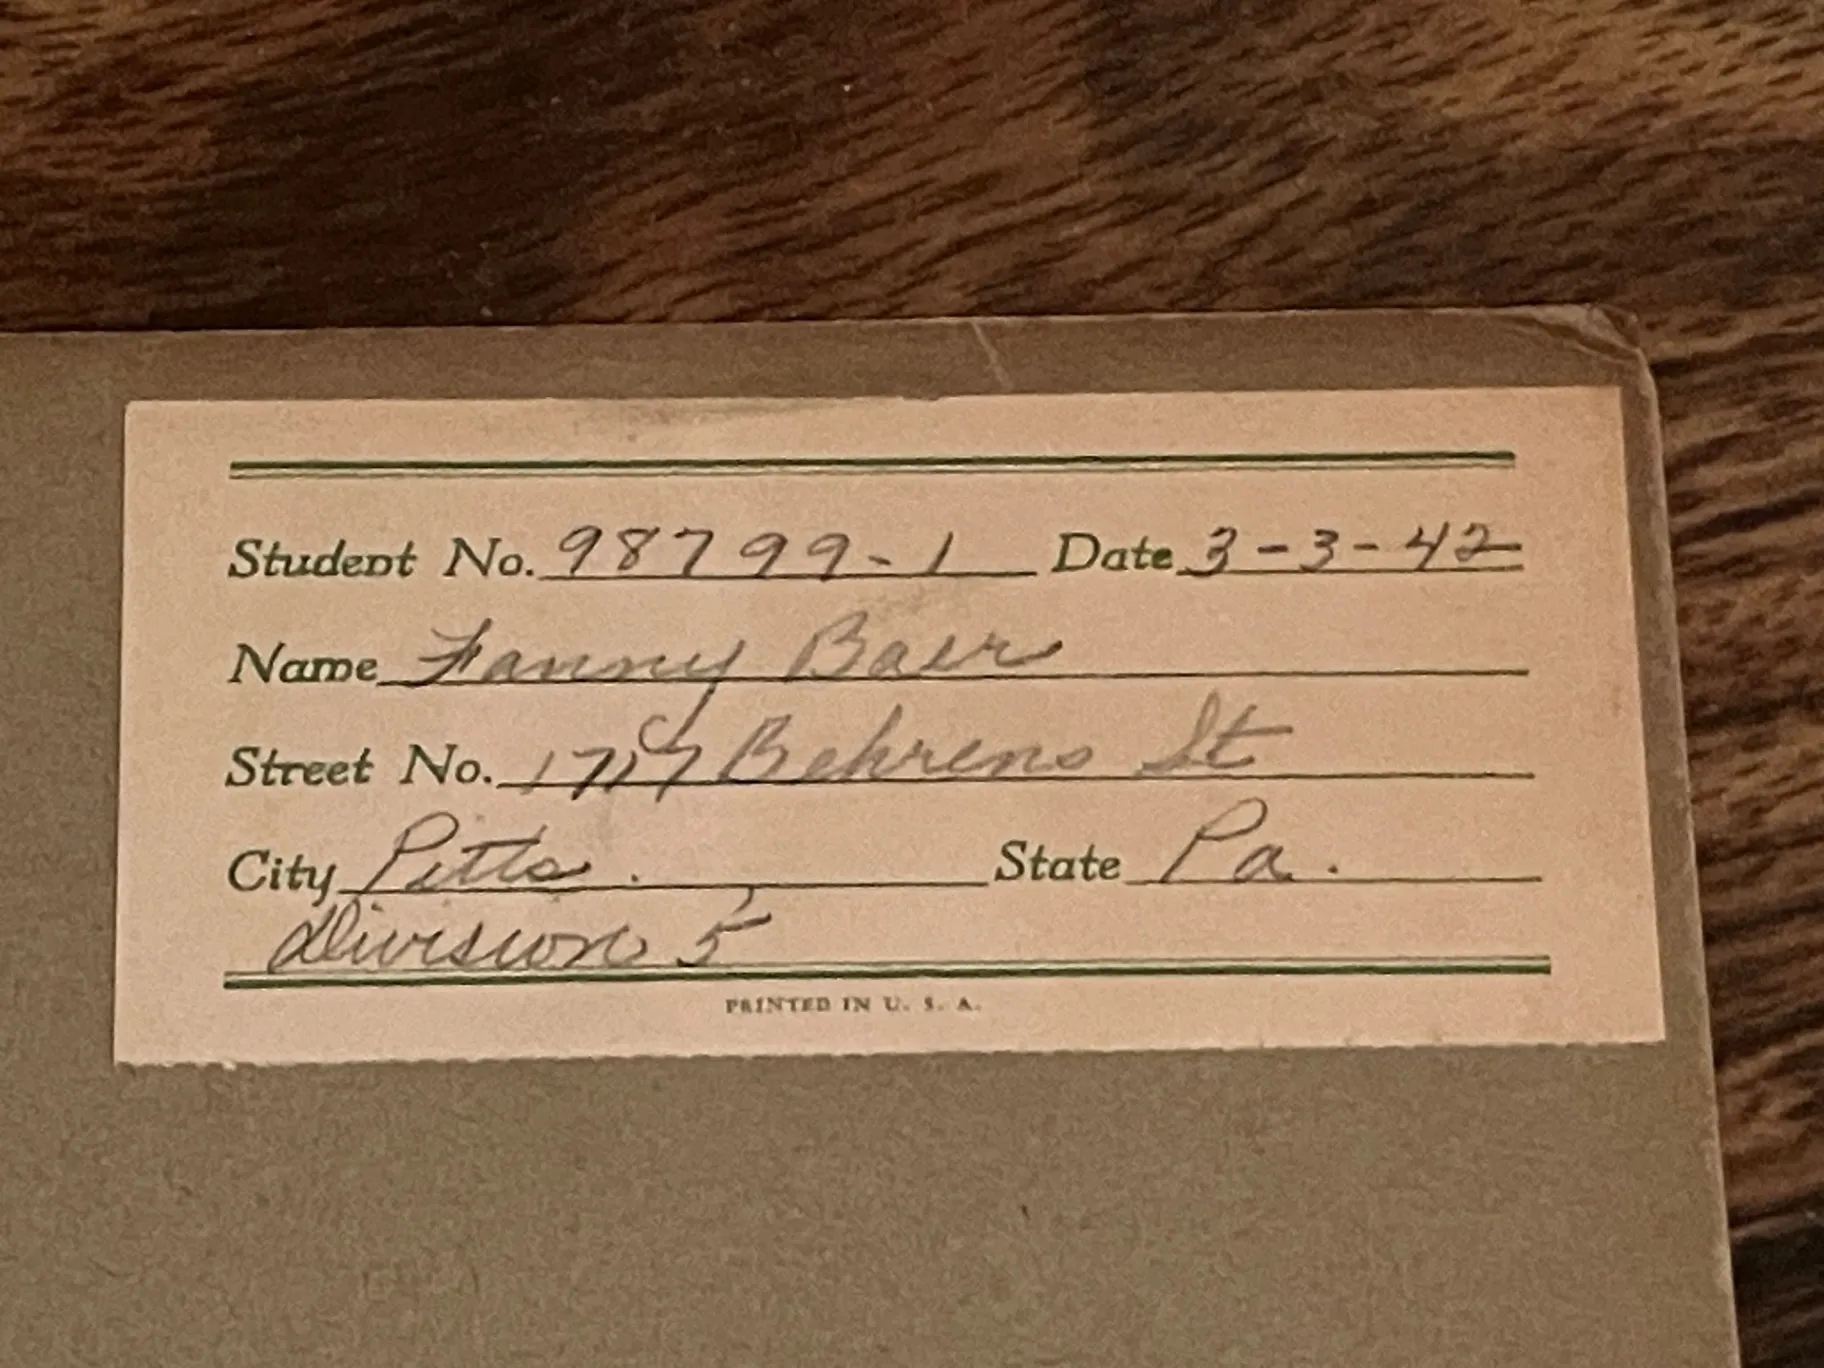 Student No. 98799-1 Date 3-3-42
Name Fanny Baer
Street No. 1717 Behrens St
City Pitts. State Pa.
Division 5
PRINTED IN U. S. A.